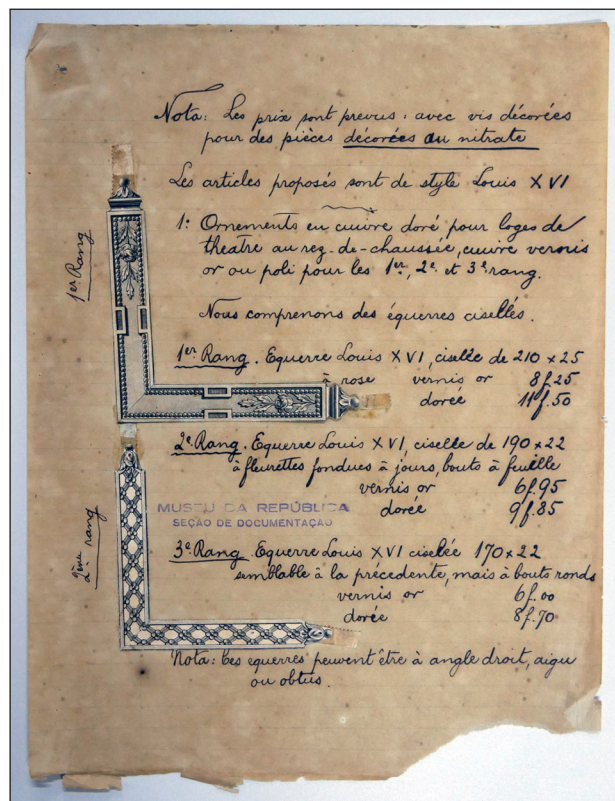 Nota: Les prix sont prevus: avec vis décorées
pour des pièces décorées au nitrate
Les articles proposés sont de style Louis XVI
1: Ornements en cuivre doré pour loges de
theatre au rez-de-chaussée, cuivre vernis
or ou poli pour les 1er, 2e et 3e rang.
Nous comprenons des équerres ciselées.
1er Rang
1er Rang. Equerre Louis XVI, ciselée de 210 x 25
à rose vernis or 8f.25
dorée 11f.50
2e Rang. Equerre Louis XVI, ciselle de 190 x 22
à fleurettes fondues à jours, bouts à feuille
vernis or 6f.95
dorée 9f.85
MUSEU DA REPÚBLICA
SEÇÃO DE DOCUMENTAÇÃO
2ème rang
3e Rang Equerre Louis XVI ciselée 170 x 22
semblable à la précedente, mais à bouts ronds
vernis or 6f.00
dorée 8f.70
Nota: Ces equerres peuvent être à angle droit, aigu
ou obtus.